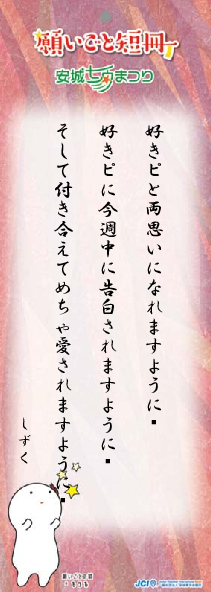 願いごと短冊
安城七夕まつり
好きピと両思いになれますように.
好きピに今週中に告白されますように.
そして付き合えてめちゃ愛されますように.
しずく
願いごと短冊
JCI